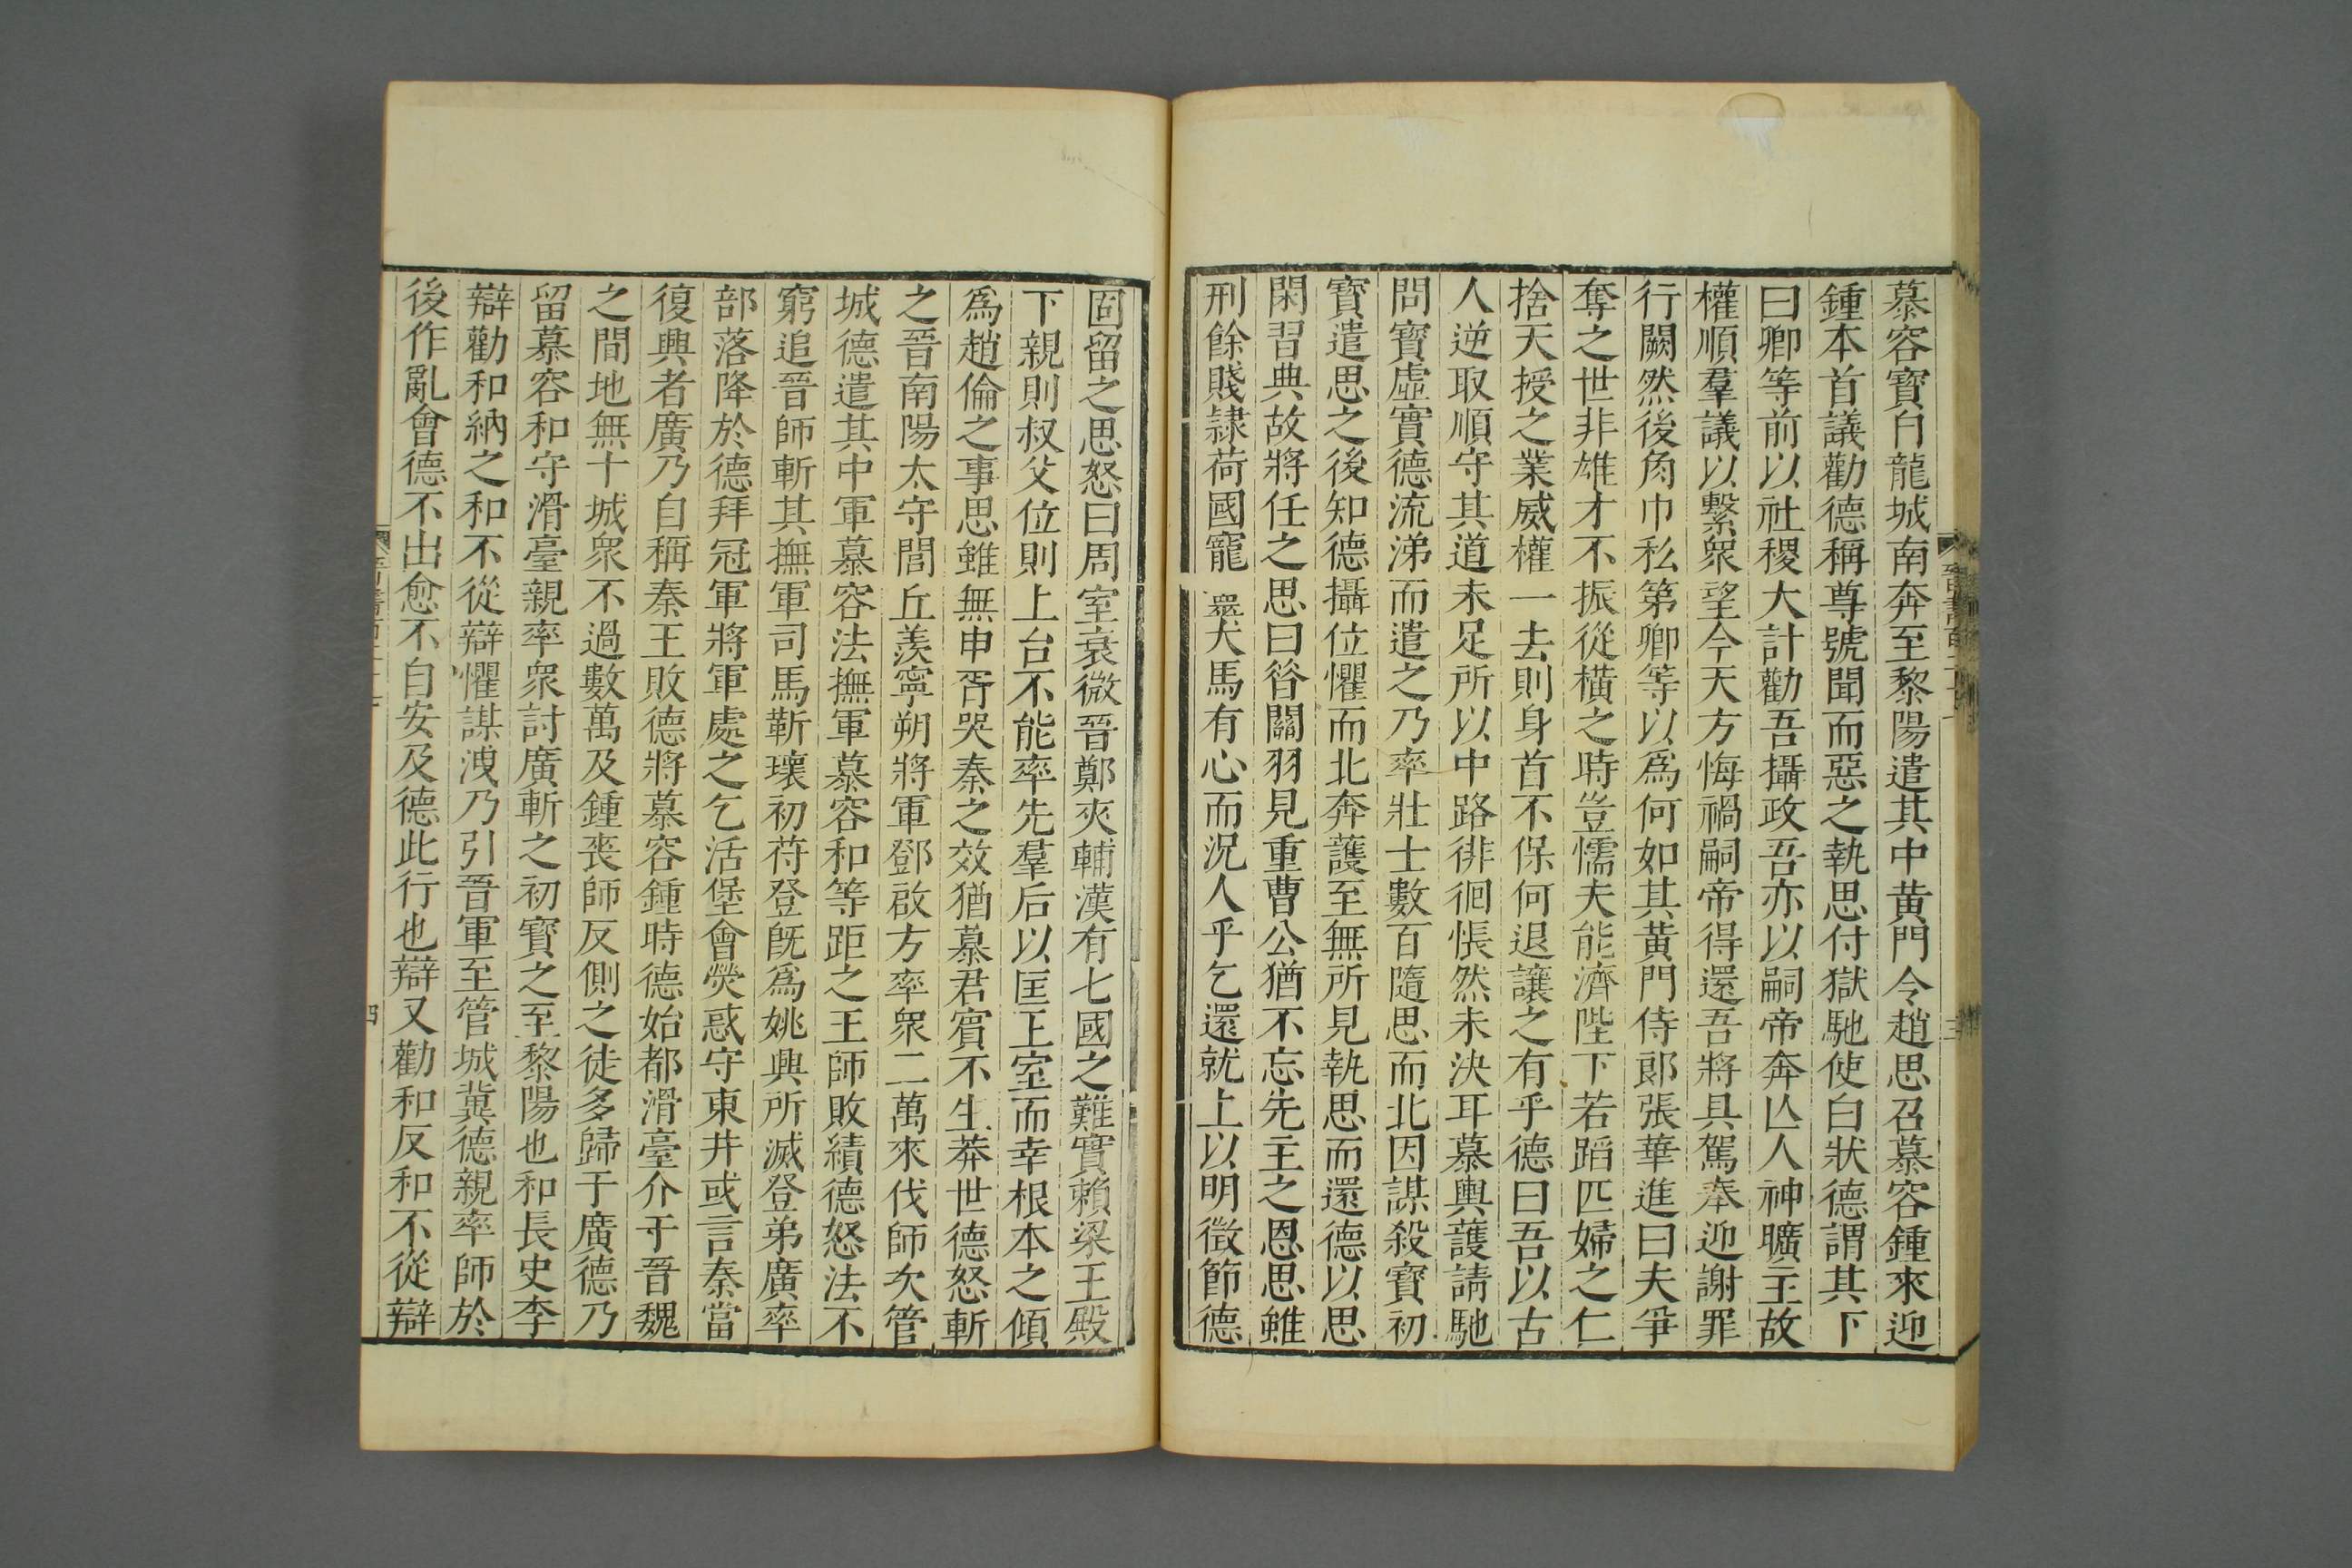 慕容寶自龍城南奔至黎陽遣其中黃門令趙思召慕容鍾來迎
鍾本首議勸德稱尊號聞而惡之執思付獄馳使白狀德謂其下
曰卿等前以社稷大計勸吾攝政吾亦以嗣帝奔亾人神曠主故
權順羣議以繫衆望今天方悔禍嗣帝得還吾將具駕奉迎謝罪
行闕然後角巾私第卿等以爲何如其黃門侍郎張華進曰夫爭
奪之世非雄才不振從橫之時豈懦夫能濟陛下若蹈匹婦之仁
捨天授之業威權一去則身首不保何退讓之有乎德曰吾以古
人逆取順守其道未足所以中路徘徊悵然未決耳慕輿護請馳
問寶虛實德流涕而遣之乃率壯士數百隨思而北因謀殺寶初
寶遣思之後知德攝位懼而北奔護至無所見執思而還德以思
閑習典故將任之思曰昝關羽見重曹公猶不忘先主之恩思雖
刑餘賤隷荷國寵 犬馬有心而況人乎乞還就上以明徵節德
固留之思怒曰周室衰微晉鄭夾輔漢有七國之難實賴梁王殿
下親則叔父位則上台不能率先羣后以匡王室而幸根本之傾
爲趙倫之事思雖無申胥哭秦之效猶慕君賓不生莽世德怒斬
之晉南陽太守閭丘羨寧朔將軍鄧啟方率衆二萬來伐師次管
城德遣其中軍慕容法撫軍慕容和等距之王師敗績德怒法不
窮追晉師斬其撫軍司馬靳瓌初苻登旣爲姚興所滅登弟廣率
部落降於德拜冠軍將軍處之乞活堡會熒惑守東井或言秦當
復興者廣乃自稱秦王敗德將慕容鍾時德始都滑臺介于晉魏
之間地無十城衆不過數萬及鍾喪師反側之徒多歸于廣德乃
留慕容和守滑臺親率衆討廣斬之初寶之至黎陽也和長史李
辯勸和納之和不從辯懼謀洩乃引晉軍至管城冀德親率師於
後作亂會德不出愈不自安及德此行也辯又勸和反和不從辯
四